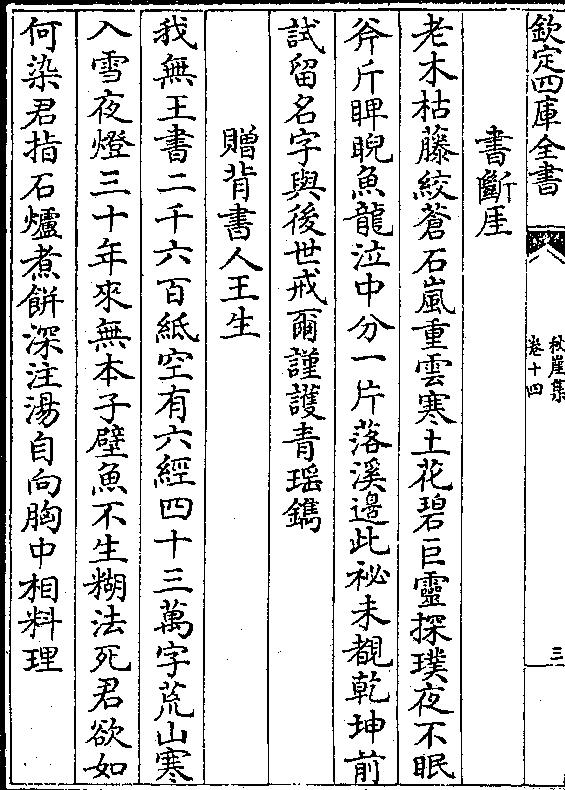 欽定四庫全書
秋崖集
卷十四
三
書斷厓
老木枯藤絞蒼石嵐重雲寒土花碧巨靈探璞夜不眠
斧斤睥睨魚龍泣中分一片落溪邉此祕未覩乾坤前
試留名字與後世戒爾謹護青瑶鐫
贈背書人王生
我無王書二千六百紙空有六經四十三萬字荒山寒
入雪夜燈三十年來無本子壁魚不生糊法死君欲如
何染君指石爐煮餅深注湯自向胸中相料理